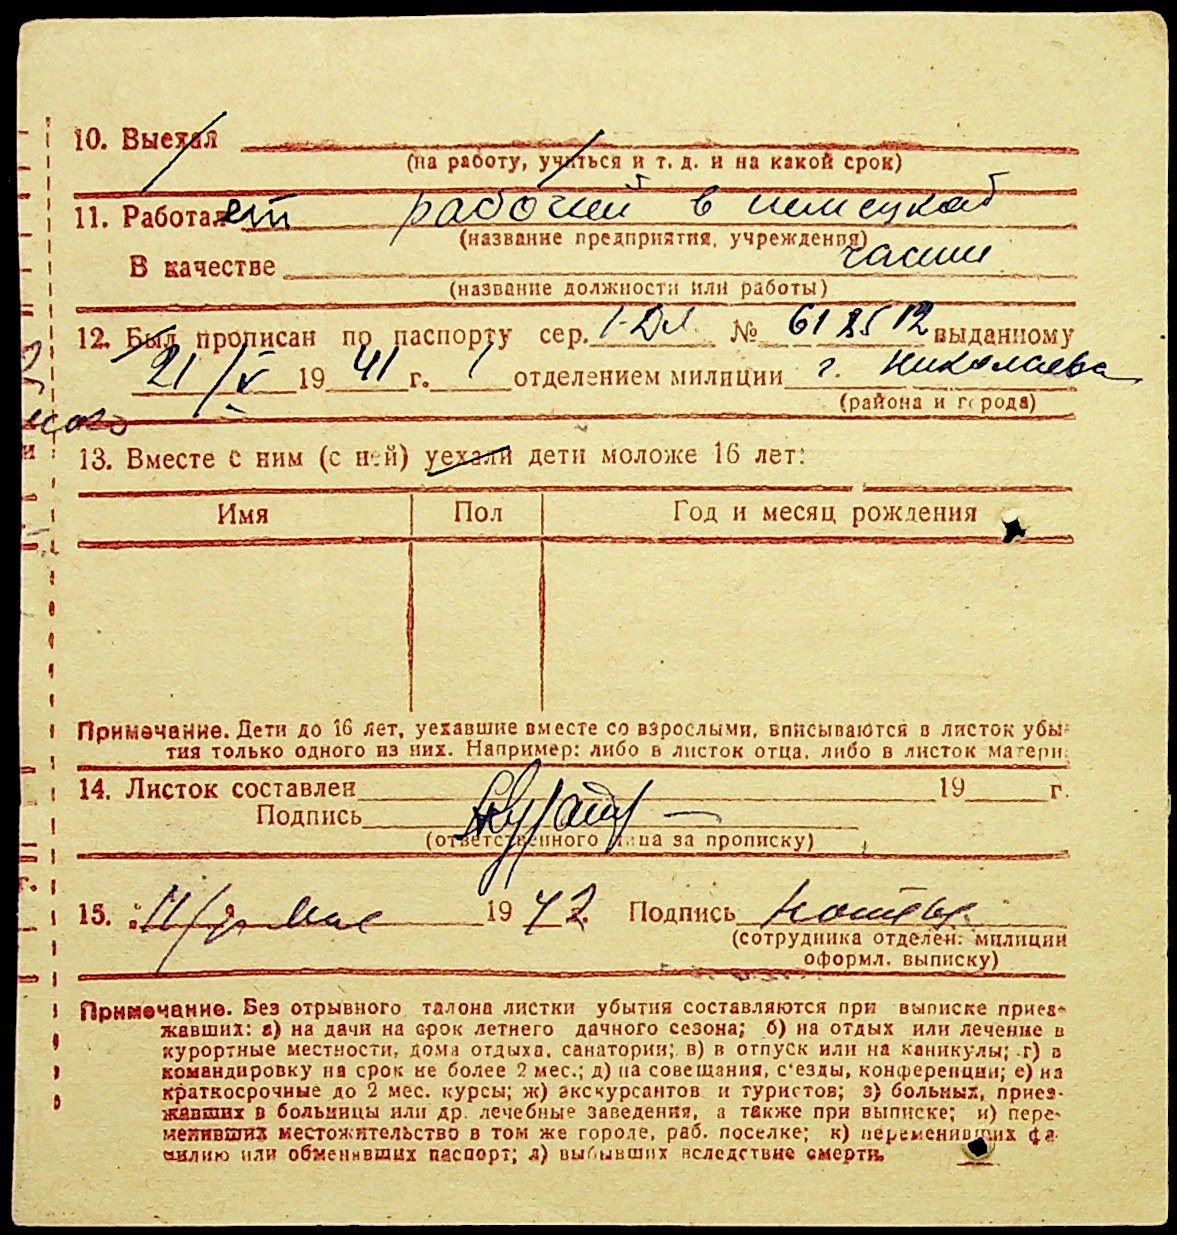 10. Выехал
(на работу, учиться и т. д. и на какой срок)
11. Работает рабочий в немецкой
(название предприятия, учреждения)
части
В качестве
(название должности или работы)
12. Был прописан по паспорту сер. № выданному
21/V 1941 г. 1 отделением милиции г. Николаева
(района и города)
13. Вместе с ним (с ней) уехали дети моложе 16 лет:
Имя Пол Год и месяц рождения
Примечание. Дети до 16 лет, уехавшие вместе со взрослыми, вписываются в листок убы-
тия только одного из них. Например: либо в листок отца, либо в листок матери.
14. Листок составлен 19 г.
Подпись
(ответственного лица за прописку)
15. " 11/ " мая 1942 Подпись
(сотрудника отделен. милиции
оформл. выписку)
Примечание. Без отрывного талона листки убытия составляются при выписке приез-
жавших: а) на дачи на срок летнего дачного сезона; б) на отдых или лечение в
курортные местности, дома отдыха, санатории; в) в отпуск или на каникулы; г) в
командировку на срок не более 2 мес.; д) на совещания, с'езды, конференции; е) на
краткосрочные до 2 мес. курсы; ж) экскурсантов и туристов; з) больных, приез-
жавших в больницы или др. лечебные заведения, а также при выписке; и) пере-
менивших местожительство в том же городе, раб. поселке; к) переменивших фа-
милию или обменявших паспорт; л) выбывших вследствие смерти.